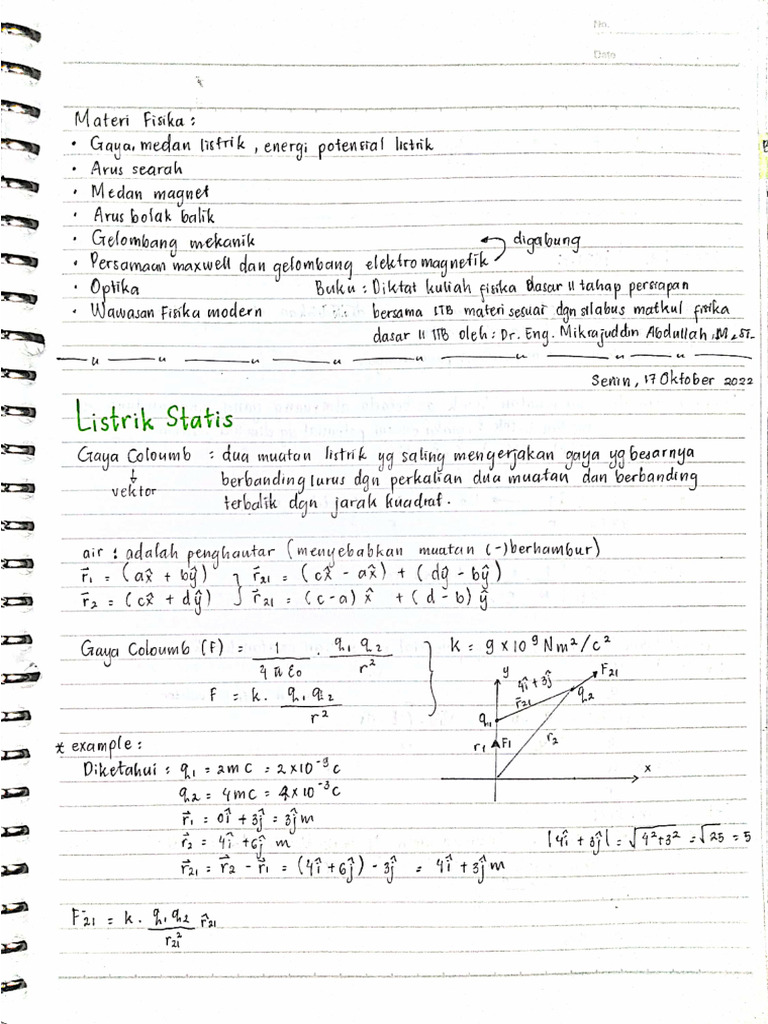 No.
Date
Materi Fisika :
• Gaya, medan listrik, energi potensial listrik
• Arus searah
• Medan magnet
• Arus bolak balik
• Gelombang mekanik digabung
• Persamaan maxwell dan gelombang elektromagnetik
• Optika Buku : Diktat kuliah fisika dasar II tahap persiapan
• Wawasan Fisika modern bersama ITB materi sesuai dgn silabus matkul fisika
dasar II ITB oleh : Dr. Eng. Mikrajuddin Abdullah, M.Si.
Senin, 17 Oktober 2022
Listrik Statis
Gaya Coloumb : dua muatan listrik yg saling mengerjakan gaya yg besarnya
↓ berbanding lurus dgn perkalian dua muatan dan berbanding
vektor terbalik dgn jarak kuadrat.
air : adalah penghantar (menyebabkan muatan (-) berhambur)
r⃗₁ = (ax̂ + bŷ) } r⃗₂₁ = (cx̂ - ax̂) + (dŷ - bŷ)
r⃗₂ = (cx̂ + dŷ) } r⃗₂₁ = (c-a) x̂ + (d-b) ŷ
Gaya Coloumb (F) = 1/4πε₀ . q₁ q₂/r² } k = 9 × 10⁹ Nm²/c²
F = k. q₁ q₂/r²
y
4î + 3ĵ
r⃗₂₁
F₂₁
q₂
q₁
r₁ F₁
r₂
x
* example :
Diketahui : q₁ = 2mC = 2×10⁻³C
q₂ = 4mC = 4×10⁻³C
r⃗₁ = 0î + 3ĵ = 3ĵ m
r⃗₂ = 4î + 6ĵ m |4î + 3ĵ| = √4²+3² = √25 = 5
r⃗₂₁ = r⃗₂ - r⃗₁ = (4î + 6ĵ) - 3ĵ = 4î + 3ĵ m
F⃗₂₁ = k. q₁q₂/r₂₁² r̂₂₁